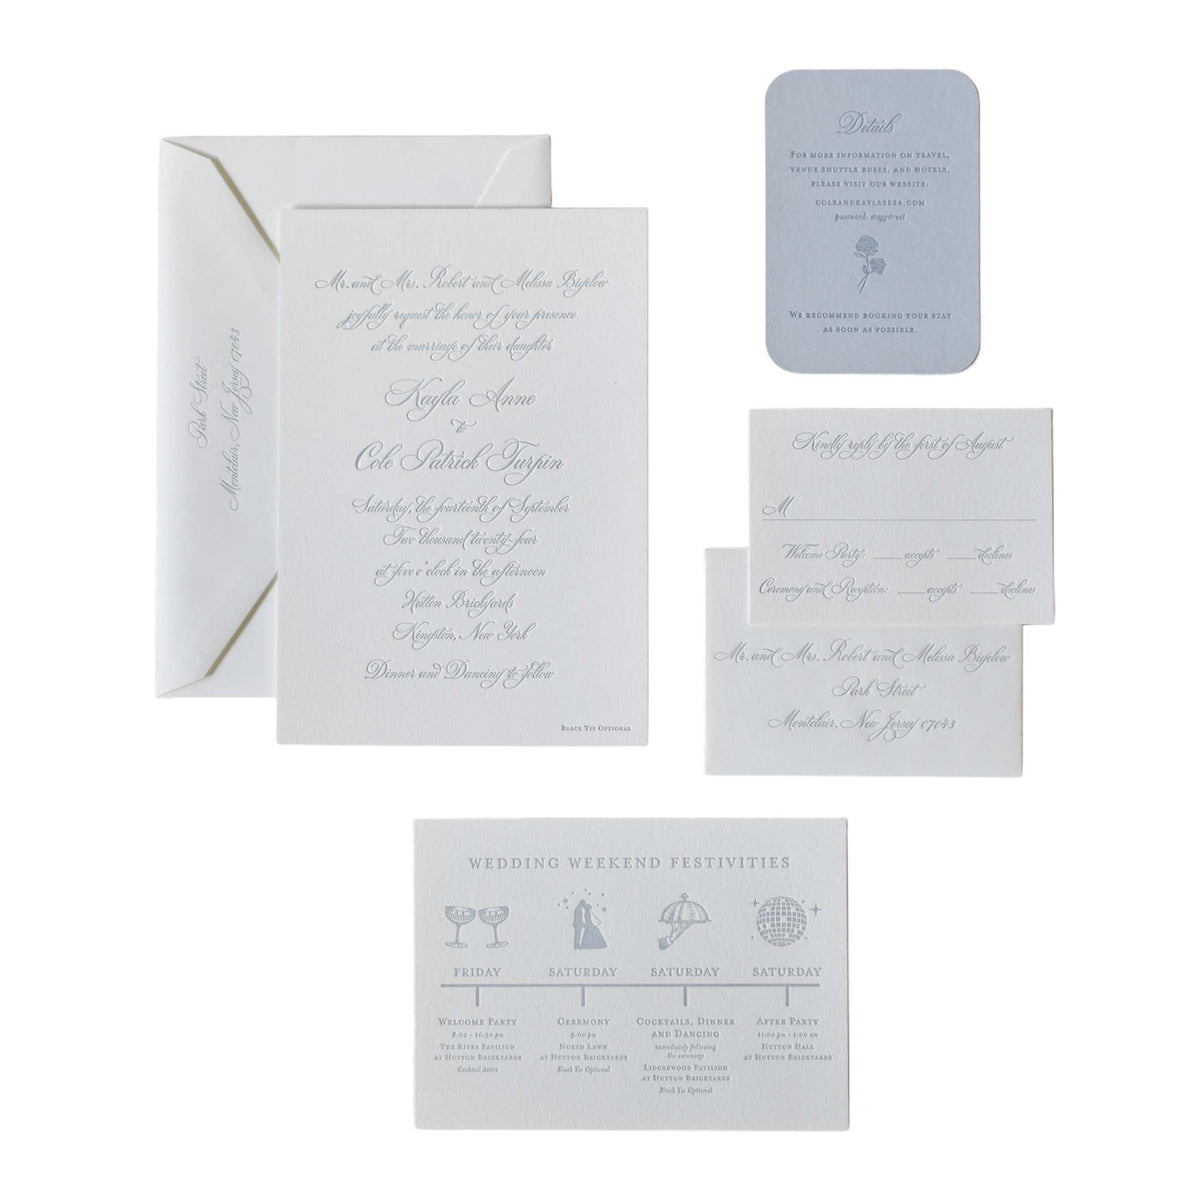 Park Street
Montclair, New Jersey 07043
Mr. and Mrs. Robert and Melissa Bigelow
joyfully request the honor of your presence
at the marriage of their daughter
Kayla Anne
to
Cole Patrick Turpin
Saturday, the fourteenth of September
Two thousand twenty-four
at five o'clock in the afternoon
Hutton Brickyards
Kingston, New York
Dinner and Dancing to follow
BLACK TIE OPTIONAL
Details
FOR MORE INFORMATION ON TRAVEL,
VENUE SHUTTLE BUSES, AND HOTELS,
PLEASE VISIT OUR WEBSITE:
COLEANDKAYLA2024.COM
password:
WE RECOMMEND BOOKING YOUR STAY
AS SOON AS POSSIBLE.
Kindly reply by the first of August
M
Welcome Party: ___accepts ___declines
Ceremony and Reception: ___accepts ___declines
Mr. and Mrs. Robert and Melissa Bigelow
Park Street
Montclair, New Jersey 07043
WEDDING WEEKEND FESTIVITIES
FRIDAY
WELCOME PARTY
8:00 - 10:30 pm
THE RIVER PAVILION
AT HUTTON BRICKYARDS
Cocktail Attire
SATURDAY
CEREMONY
5:00 pm
NORTH LAWN
AT HUTTON BRICKYARDS
Black Tie Optional
SATURDAY
COCKTAILS, DINNER
AND DANCING
immediately following
the ceremony
LIDGERWOOD PAVILION
AT HUTTON BRICKYARDS
Black Tie Optional
SATURDAY
AFTER PARTY
11:00 pm - 1:00 am
HUTTON HALL
AT HUTTON BRICKYARDS